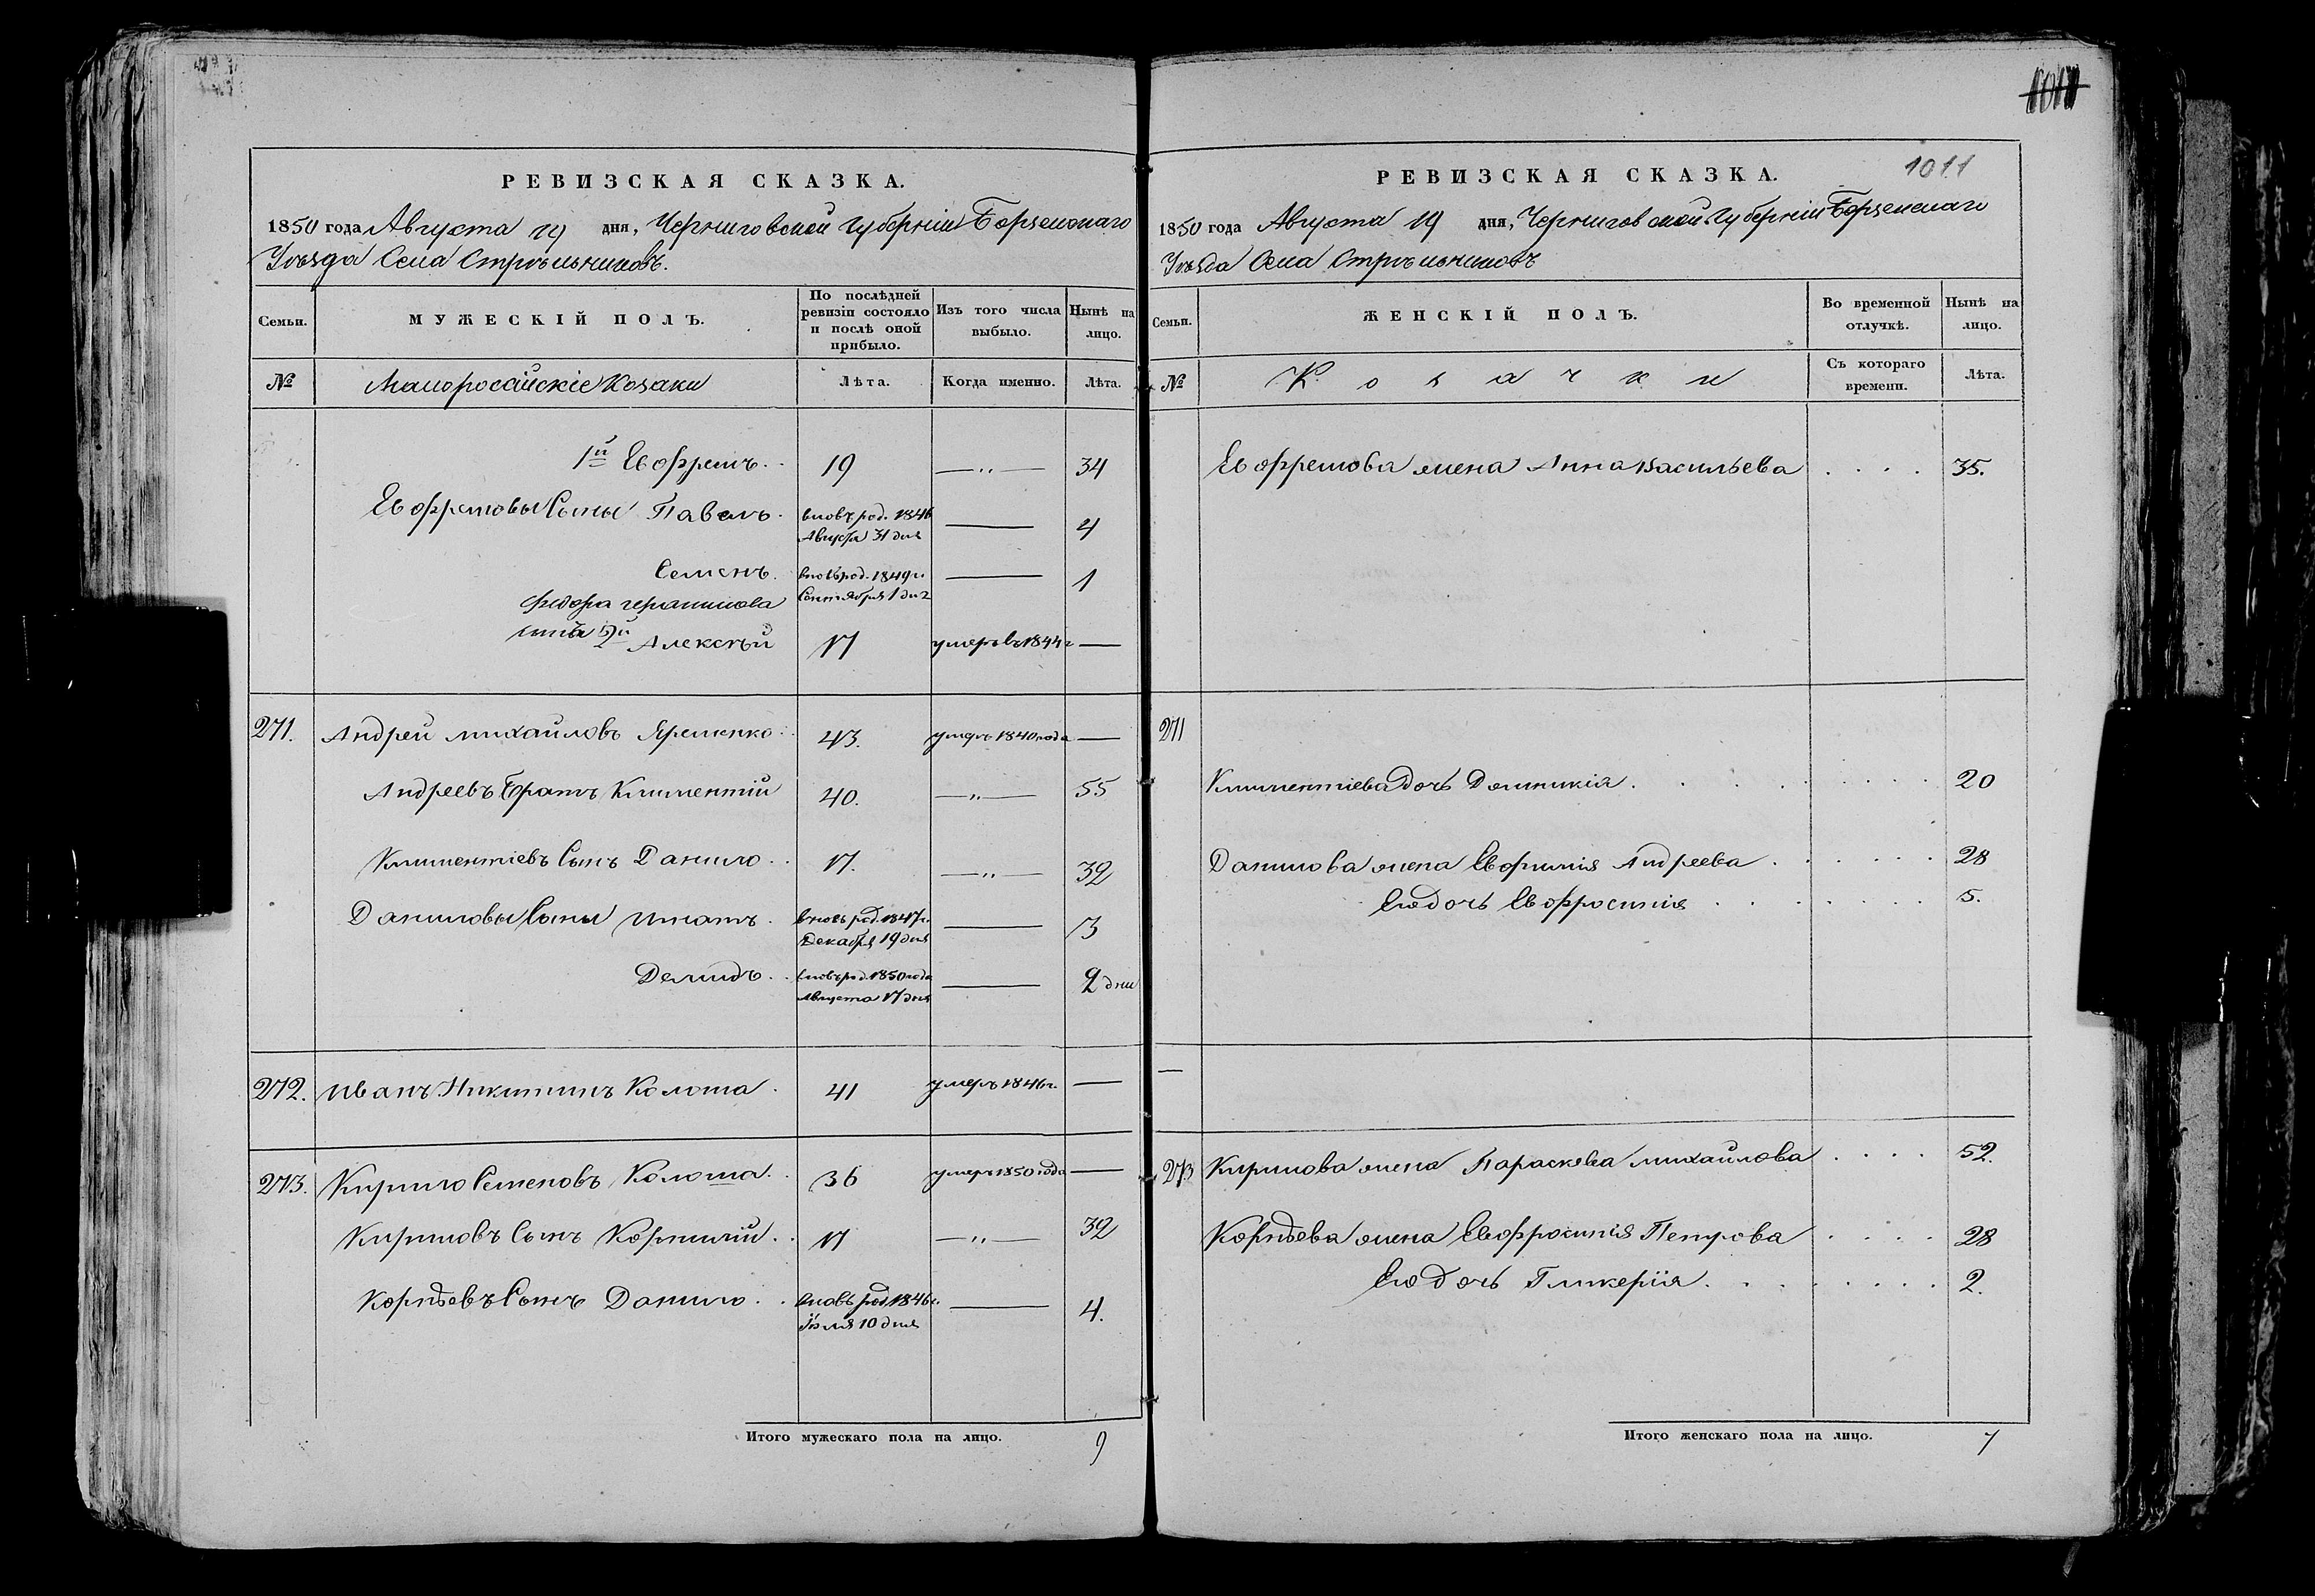 1011
РЕВИЗСКАЯ СКАЗКА.
1850 года Августа 19 дня, Черниговской Губерніи Борзенскаго
Уѣзда Села Стрѣльниковъ.
Семьи.
МУЖЕСКІЙ ПОЛЪ.
По послѣдней ревизіи состояло и послѣ оной прибыло.
Изъ того числа выбыло.
Нынѣ на лицо.
№ Малороссійскіе Козаки Лѣта. Когда именно. Лѣта.
1й Евфремъ. 19 —„— 34
Евфремовы Сыны Павелъ. вновь род. 1846 Августа 31 дня — 4
Семенъ. вновь род. 1849 г. Сентября 1 дня — 1
Федора
2й Алексѣй 17 умеръ въ 1844 г —
271. Андрей Михайловъ Яременко. 43. умеръ 1840 года —
Андреевъ братъ Климентій 40. —„— 55
Климентіевъ Сынъ Данило. 17. —„— 32
Даниловы Сыны Игнатъ. вновь род. 1847 г. Декабря 19 дня — 3
Демидъ. вновь род. 1850 года Августа 17 дня — 2 дни
272. Иванъ Никитинъ Колоша. 41 умеръ 1846 г. —
273. Кирило Семеновъ Колоша. 36 умеръ 1850 года —
Кириловъ Сынъ Корнилій. 17 —„— 32
Корнѣевъ Сынъ Данило. вновь род. 1846 г. Іюля 10 дня — 4.
Итого мужескаго пола на лицо. 9
РЕВИЗСКАЯ СКАЗКА. 1011
1850 года Августа 19 дня, Черниговской Губерніи Борзенскаго
Уѣзда Села Стрѣльниковъ
Семьи.
ЖЕНСКІЙ ПОЛЪ.
Во временной отлучкѣ.
Нынѣ на лицо.
№ Козачки Съ котораго времени. Лѣта.
Евфремова жена Анна Васильева 35.
271
Климентіева дочь Домникія. 20
Данилова жена Евфимія Андреева. 28
Ею дочь Евфросинія 5.
—
273 Кирилова жена Параскева Михайлова 52.
Корнѣева жена Евфросинія Петрова 28
Ею дочь Гликерія. 2.
Итого женскаго пола на лицо. 7